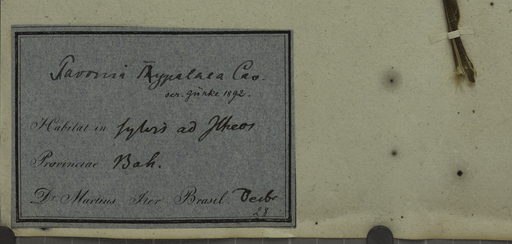 Pavonia Typalaea Cav.
scr. Gürke 1892.
Habitat in sylvis ad Ilheos
Provinciae Bah.
Dr. Martius Iter Brasil. Decbr
28